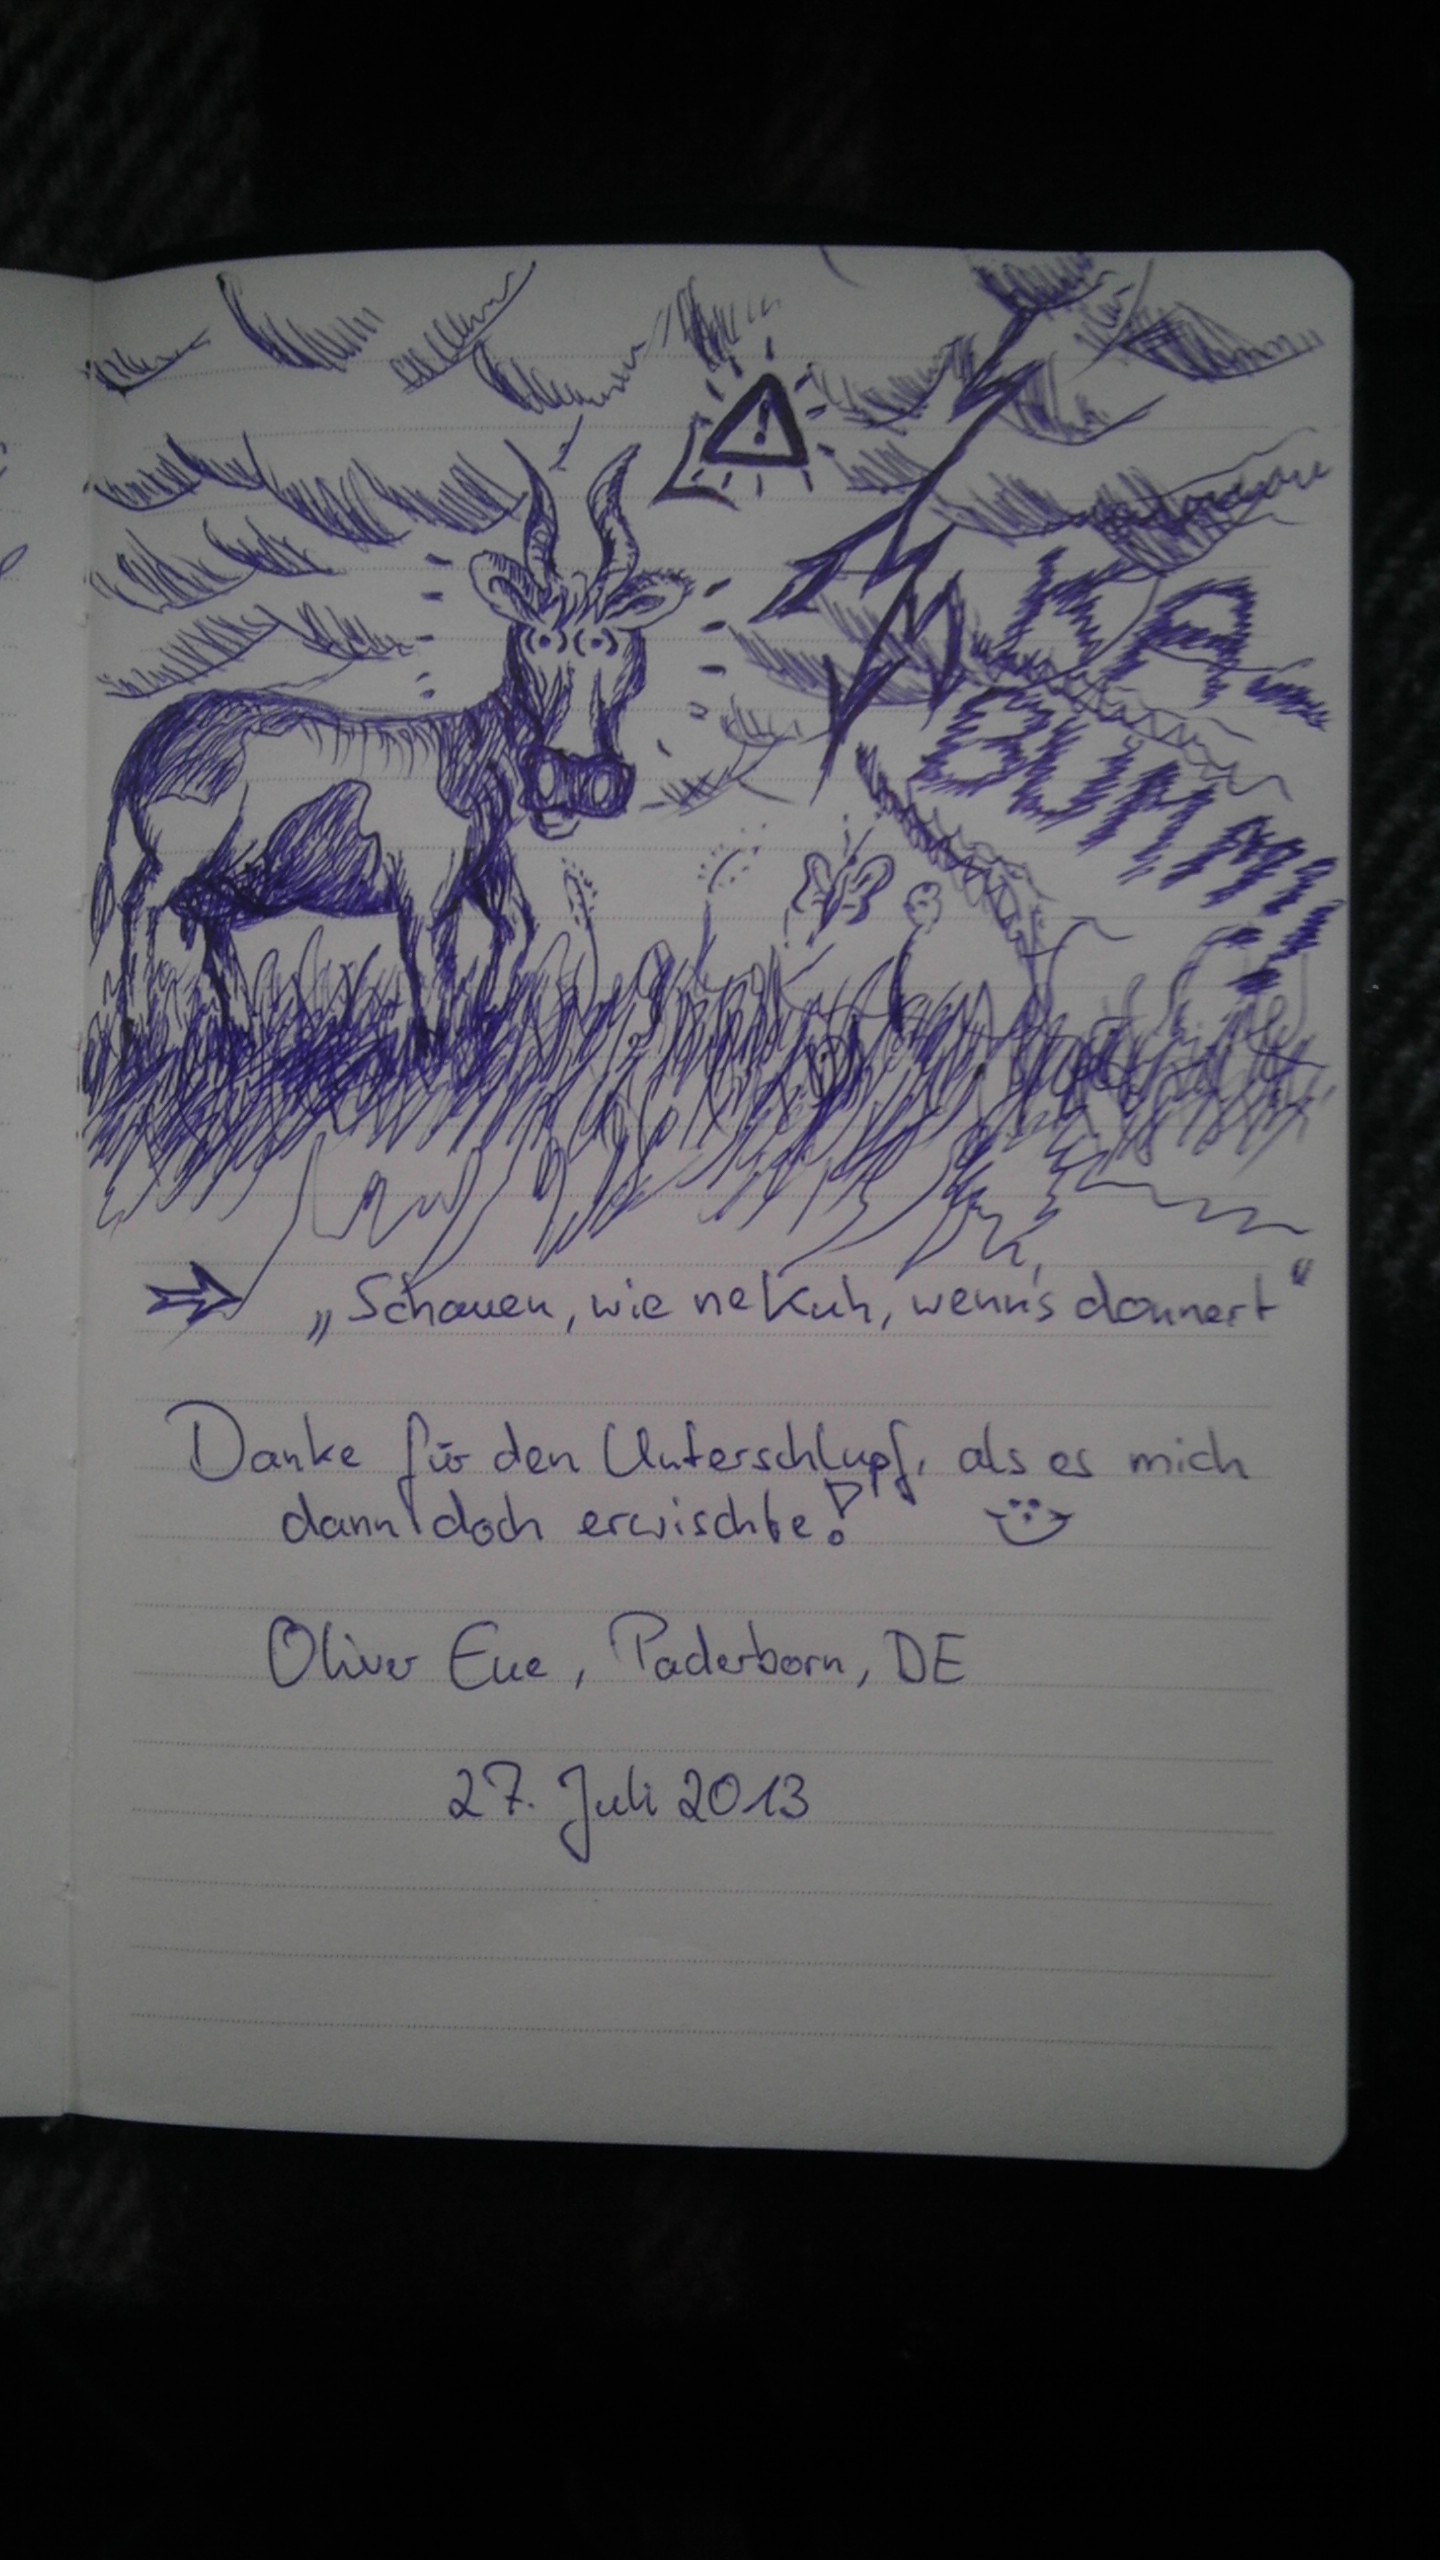 !
KA
BUMM!
„Schauen, wie ne Kuh, wenn's donnert“
Danke für den Unterschlupf, als es mich
dann doch erwischte!
Oliver Eue, Paderborn, DE
27. Juli 2013